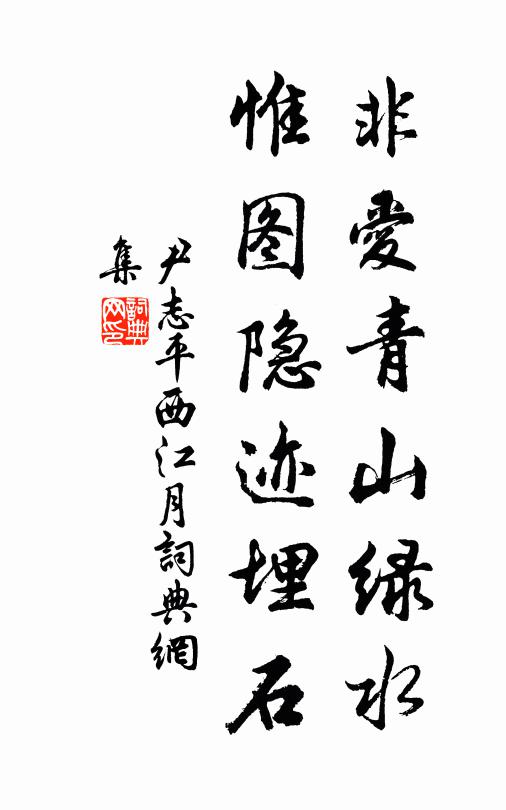 非愛青山緑水
惟图隐迹埋石
尹志平西江月詞典網
集
詞典網印